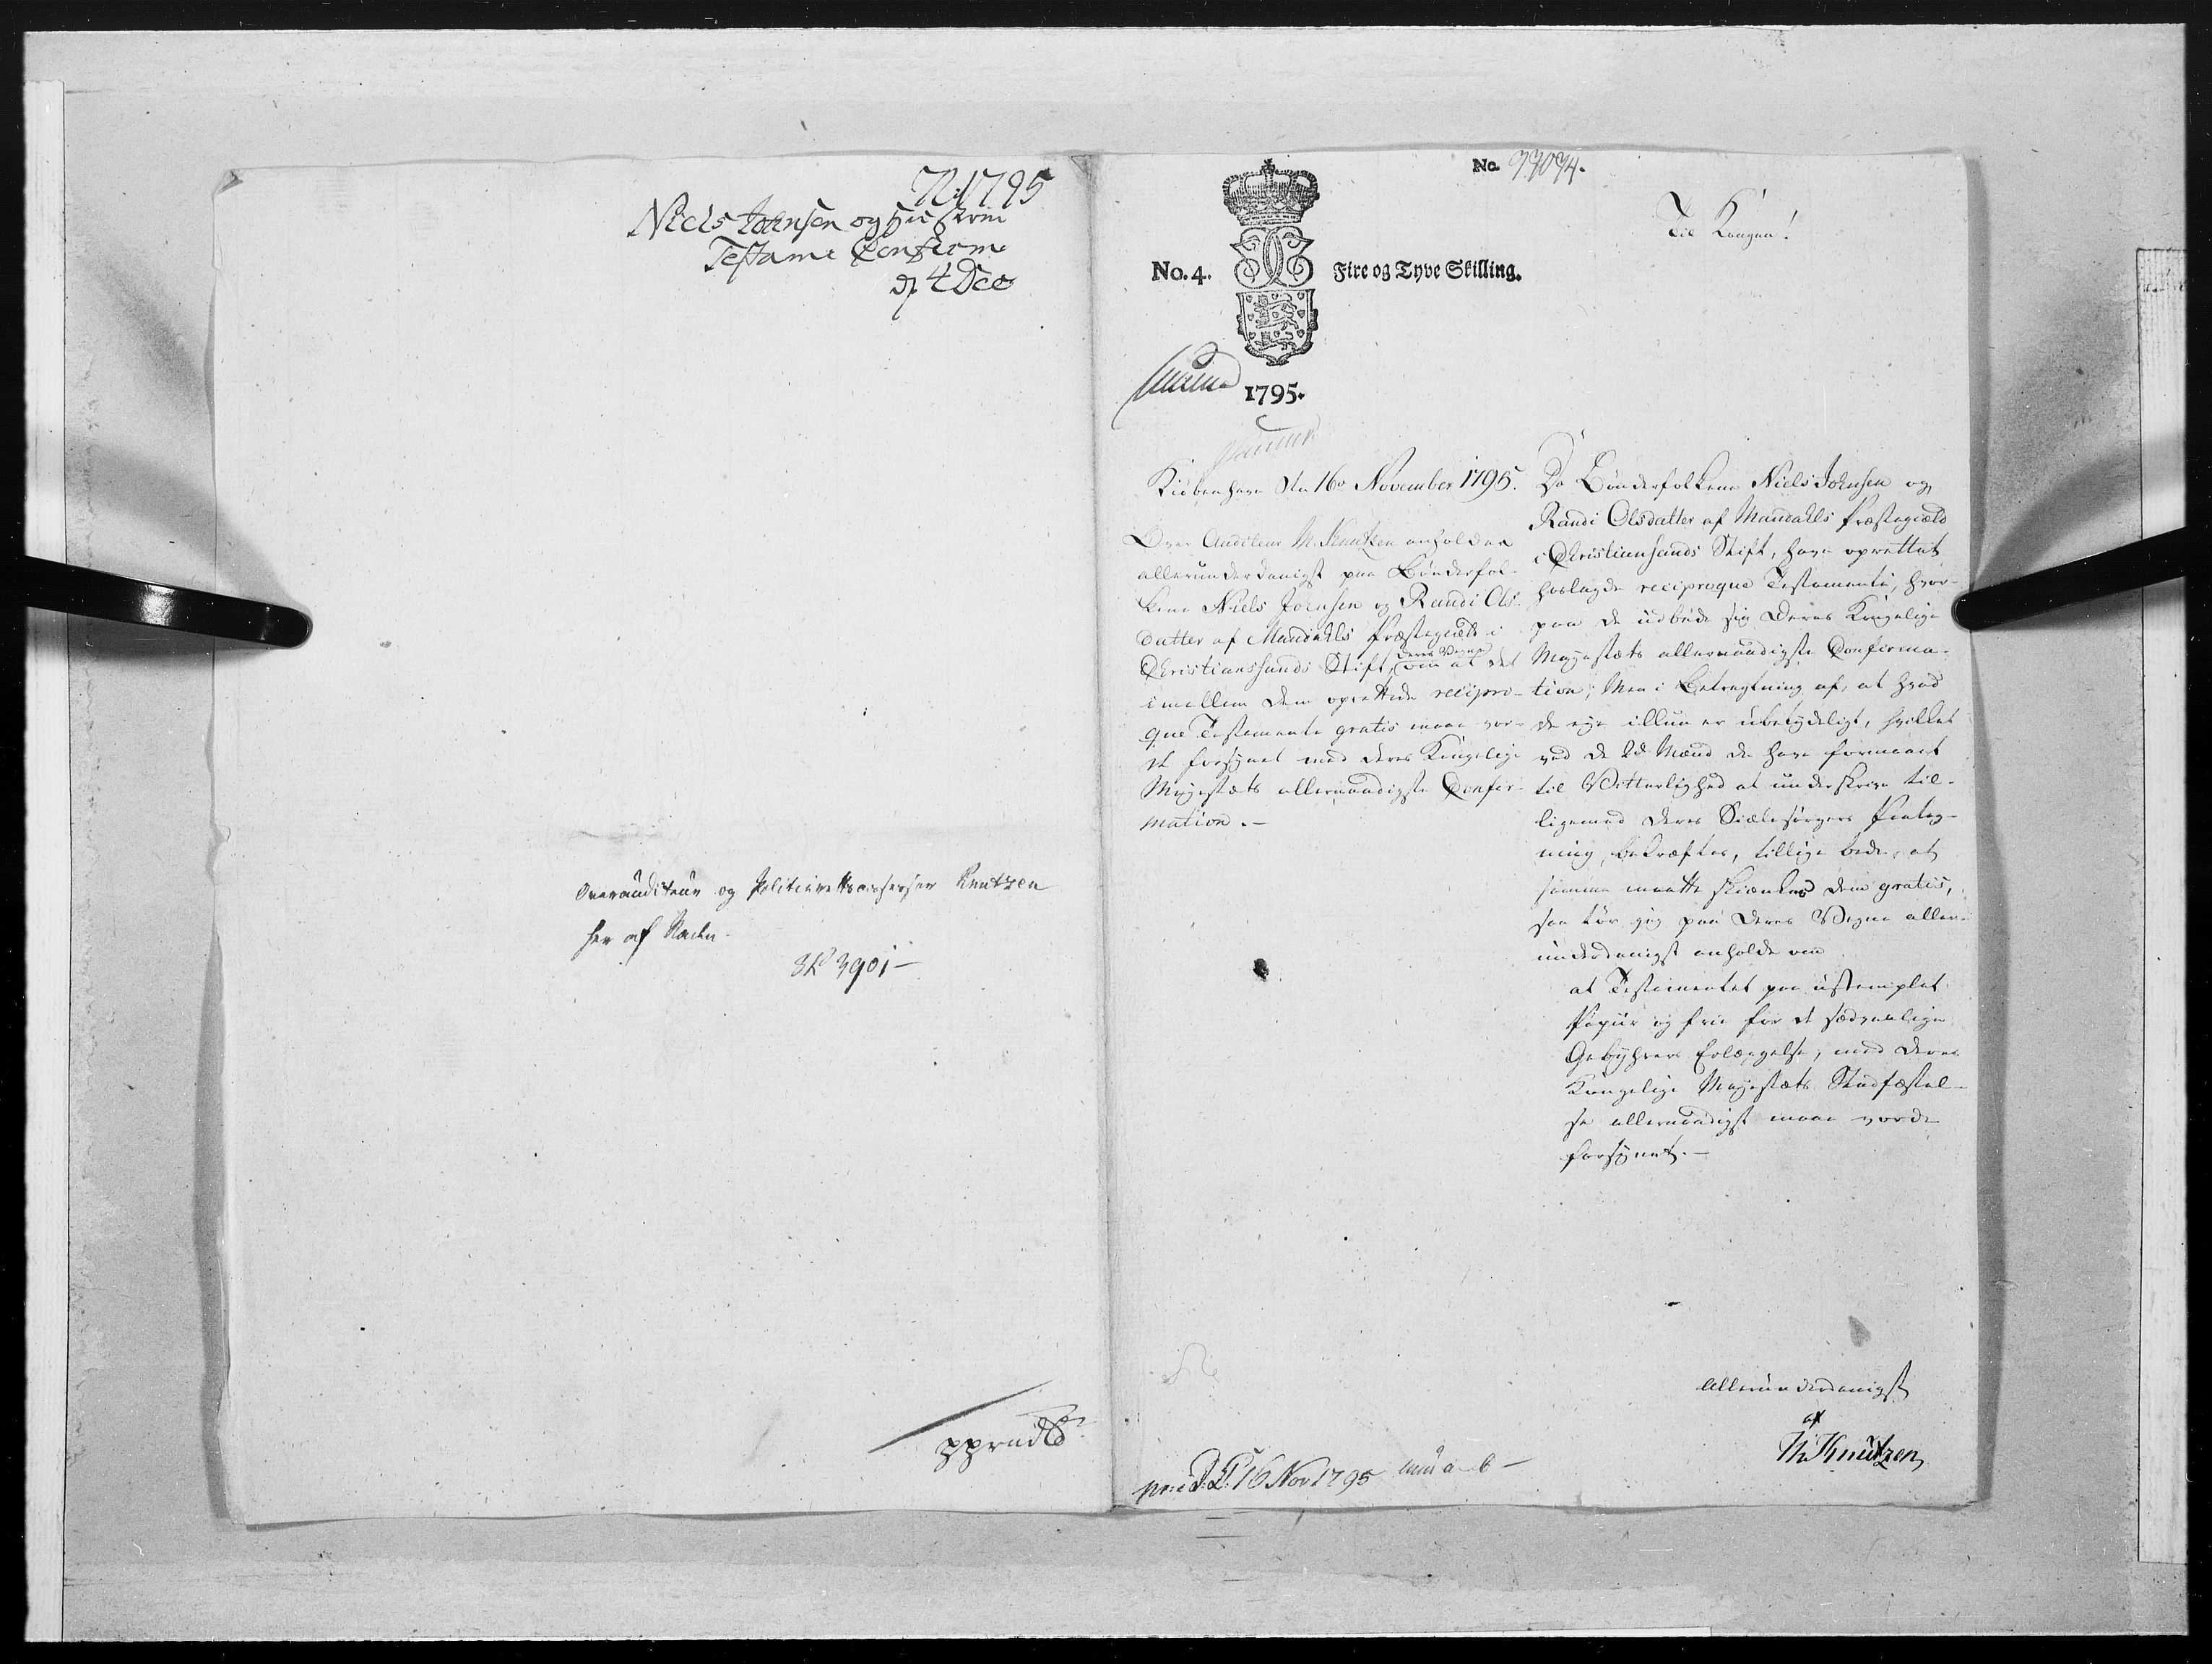 N: 1795
Niels Jornsen og Hustrue
Testame Confirm
d. 4 Dec
Overauditeur og Politierettsassessor Knutzen
her af Staden
3901 —
No. 97074.
Til Kongen!
No. 4. Fire og Tyve Skilling.
1795.
Kiöbenhavn den 16de November 1795.
Over Auditeur Th. Knutzen anholder
allerunderdanigst paa Bønderfol-
kene Niels Jornsen og Randi Ols-
datter af Mandahls Præstegield i
Christianssands Stift, deres Vegne om at det
imellem dem oprettede recipro-
que Testamente gratis maae vor-
de forsynet med Deres Kongelige
Majestæts allernaadigste Confir-
mation. —
Da Bønderfolkene Niels Jornsen og
Randi Olsdatter af Mandahls Præstegield
i Christiansands Stift, have oprettet
hoslagde reciproque Testamente, hvor-
paa de udbede sig Deres Kongelige
Majestæts allernaadigste Confirma-
tion; Men i Betragtning af, at hvad
de eye illun er ubetydeligt, hvilket
ved de 2de Mænd de have formaaet
til Vitterlighed at underskrive til-
ligemed deres Siælesörgers Paateg-
ning, bekræftes, tillige bede, at
samme maatte skienkes dem gratis,
saa tör jeg paa deres Vegne aller-
underdanigst anholde om
at Testamentet paa ustemplet
Papiir og frie for de sædvanlige
Gebyhrers Erlæggelse, med Deres
Kongelige Majestæts Stadfæstel-
se allernaadigst maae vorde
forsynet. —
Allerunderdanigst
af
Th. Knutzen
16 Nov 1795